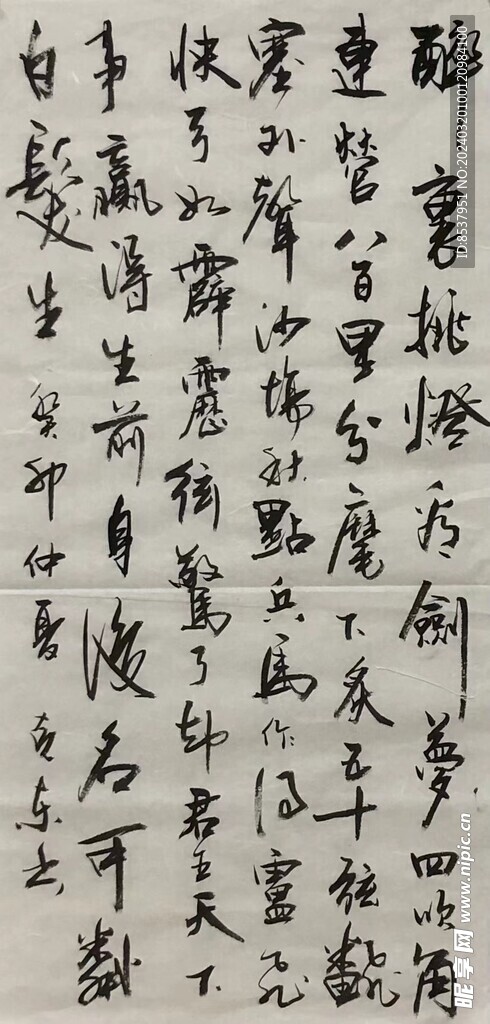 醉裏挑燈看劍夢回吹角
連營八百里分麾下炙五十弦飜
塞外聲沙場秋點兵馬作的盧飛
快弓如霹靂弦驚了却君王天下
事贏得生前身後名可憐
白髮生 癸卯仲夏克東書
ID:8537951 NO:20240320100120984100
昵享网 www.nipic.cn